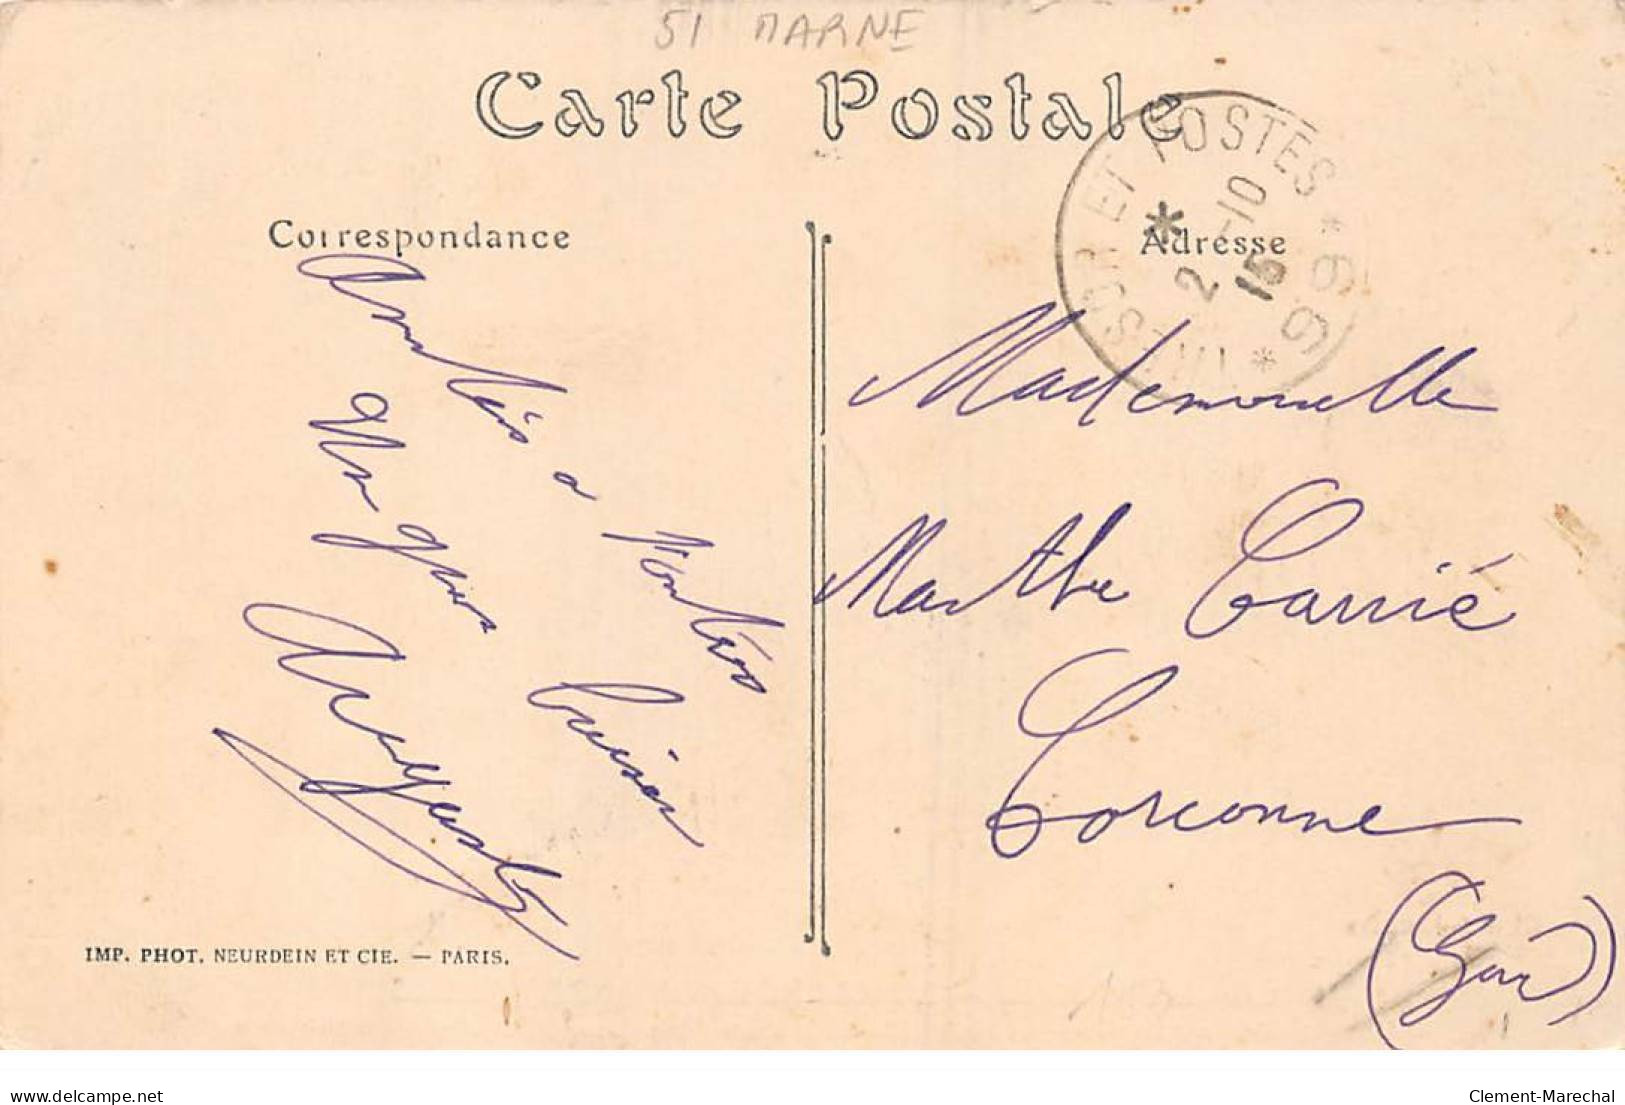 51 MARNE
Carte Postale
TRESOR ET POSTES
* 99 *
*
2 -10
15
Correspondance
Adresse
Amitiés à
Un gros
baiser
Mademoiselle
Marthe Carrié
Corconne
(Gard)
IMP. PHOT. NEURDEIN ET CIE. — PARIS.
delcampe.net
Clement-Marechal